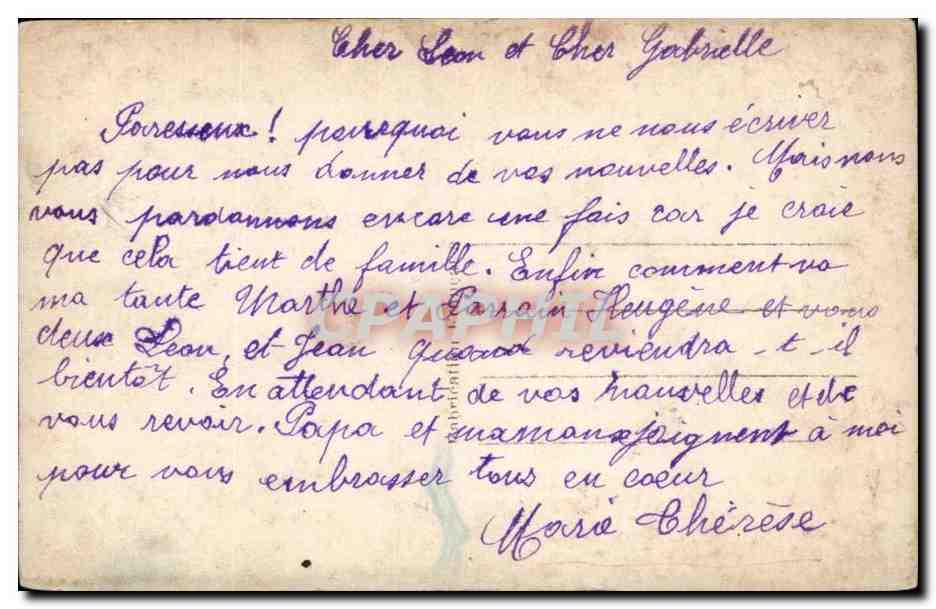 Cher Leon et Cher Gabrielle
Paresseux! pourquoi vous ne nous écriver
pas pour nous donner de vos nouvelles. Mais nous
vous pardonnons encore une fois car je craie
que cela tient de famille. Enfin comment va
ma tante Marthe et Parrain Heugène et vous
deux Leon, et Jean quand reviendra-t-il
bientôt. En attendant de vos nouvelles et de
vous revoir. Papa et maman joignent à moi
pour vous embrasser tous en coeur
Marie Thérèse
CPAPHIL